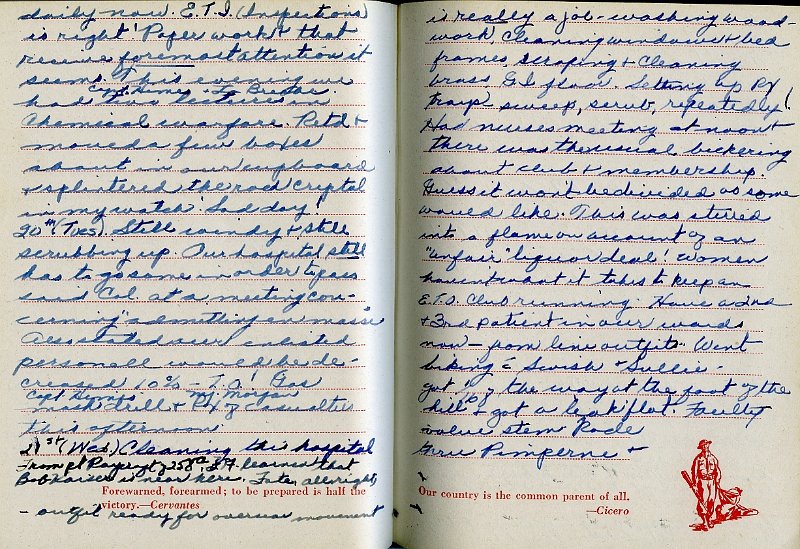 daily now. E.T.I. (Inspections)
is right! Paper work & that
receive foremost attention it
seems. This evening we
Capt. Himes + Lt.
had two lectures on
Chemical warfare. Ret'd &
moved a few boxes
about in our cupboard
& splintered the rock crystal
in my watch. Sad day!
20th (Tues). Still windy & still
scrubbing up. Our hospital still
has to go some in order to pass
said Col. at a meeting con-
cerning "admitting en masse"
Also stated our enlisted
personell would be de-
creased 10% - T.O.! Gas
Capt. Himes Mj. Morgan
mask drill & Rx of casualties
this afternoon.
21st (Wed.) Cleaning this hospital
From pl learned that
Bob Kaiser is near here. Fate, allright
Forewarned, forearmed; to be prepared is half the
victory.—Cervantes
- outfit ready for oversea movement
is really a job - washing wood-
work, cleaning windows & bed
frames, scraping & cleaning
brass, G.I. floor. Setting up
trays, sweep, scrub, repeatedly!
Had nurses meeting at noon &
there was the usual bickering
about club & membership.
Guess it won't be divided as some
would like. This was stirred
into a flame on account of an
"unfair" liquor deal! Women
haven't what it takes to keep an
E.T.O. Club running. Have a 2nd
& 3rd patient in our wards
now - from line outfits. Went
biking c̄ Swish & Sullie -
got 1/2 of the way at the foot of the
hill & got a leak flat. Faulty
valve stem. Rode
thru Pimperne &
Our country is the common parent of all.
—Cicero